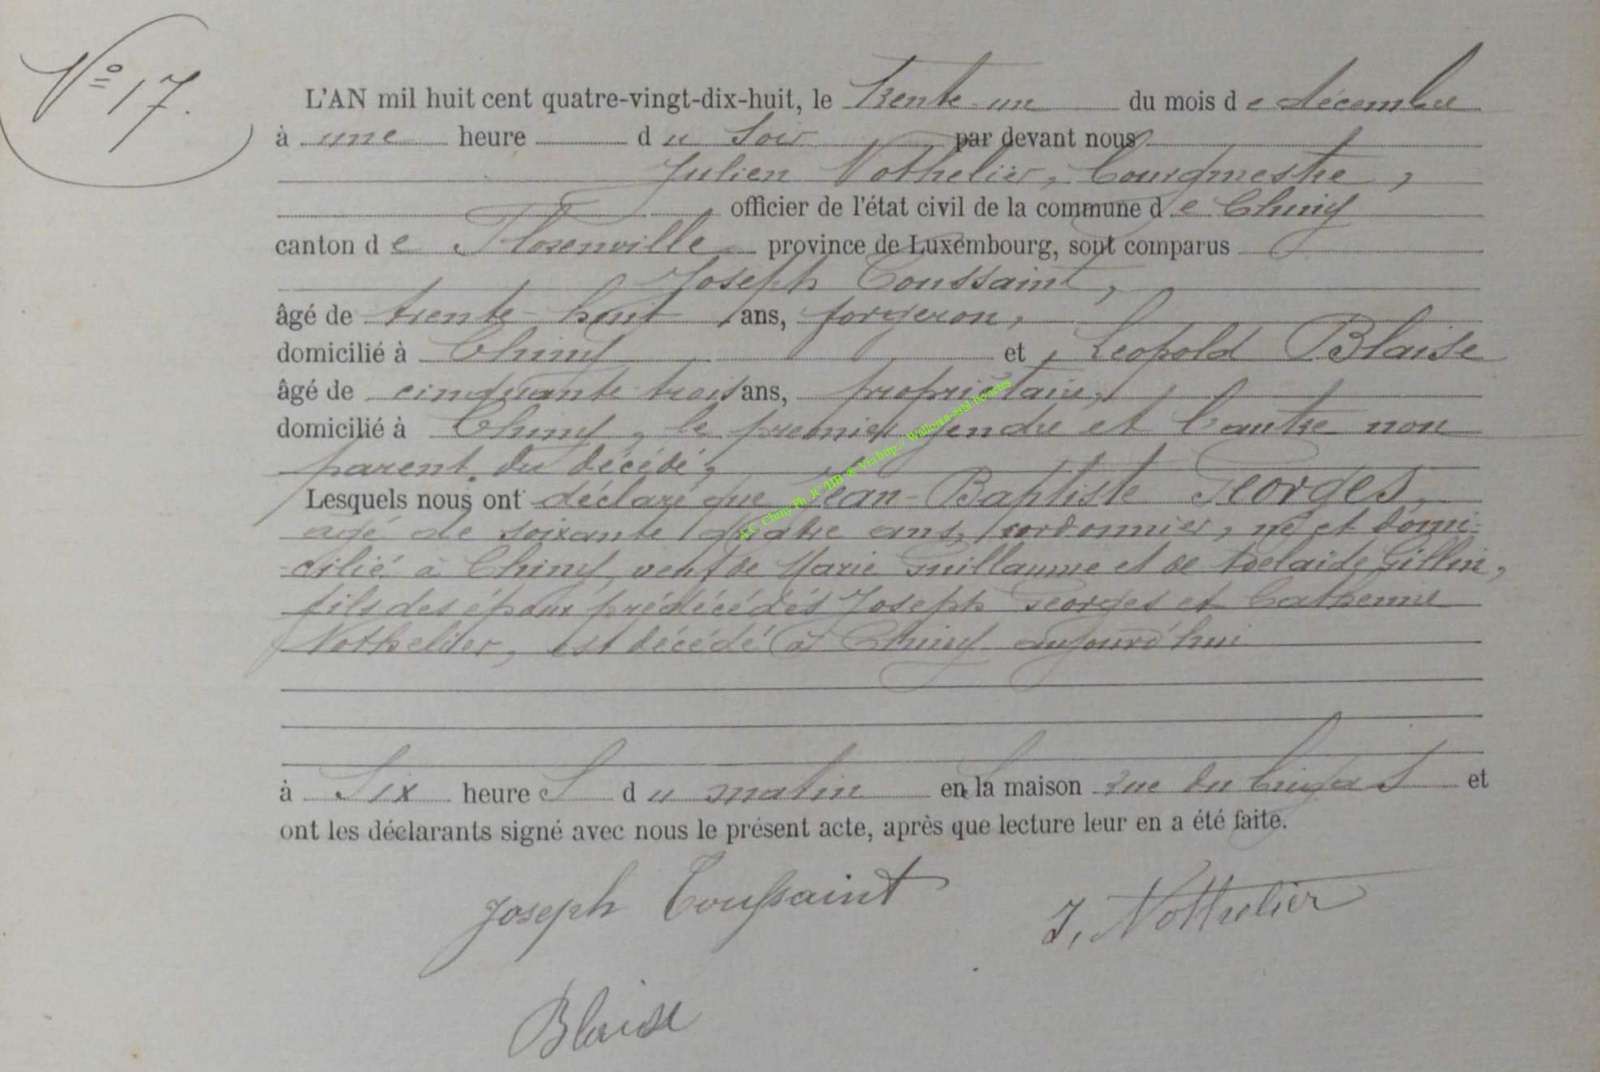 N° 17.
L'AN mil huit cent quatre-vingt-dix-huit, le trente-un du mois de décembre
à une heure du soir par devant nous
Julien Nothelier, bourgmestre,
officier de l'état civil de la commune de Chiny
canton de Florenville province de Luxembourg, sont comparus
Joseph Toussaint,
âgé de trente-huit ans, forgeron,
domicilié à Chiny et Léopold Blaise
âgé de cinquante-trois ans, propriétaire,
domicilié à Chiny, le premier gendre et l'autre non
parent du décédé,
Lesquels nous ont déclaré que Jean-Baptiste Georges,
agé de soixante quatre ans, cordonnier, né et domi-
cilié à Chiny, veuf de Marie Guillaume et de Adelaide Gillin,
fils des époux prédécédés Joseph Georges et Catherine
Nothelier, est décédé à Chiny aujourd'hui
à six heures du matin en la maison rue du et
ont les déclarants signé avec nous le présent acte, après que lecture leur en a été faite.
Joseph Toussaint
J. Nothelier
Blaise